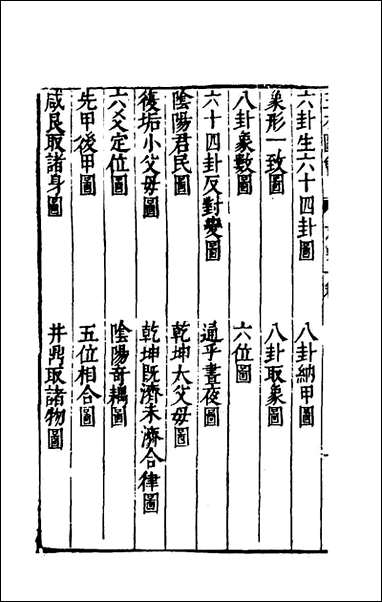 六卦生六十四卦圖 八卦納甲圖
象形一致圖 八卦取象圖
八卦象數圖 六位圖
六十四卦反對變圖 通乎晝夜圖
陰陽君民圖 乾坤大父母圖
復姤小父母圖 乾坤既濟未濟合律圖
六爻定位圖 陰陽奇耦圖
先甲後甲圖 五位相合圖
咸艮取諸身圖 井鼎取諸物圖